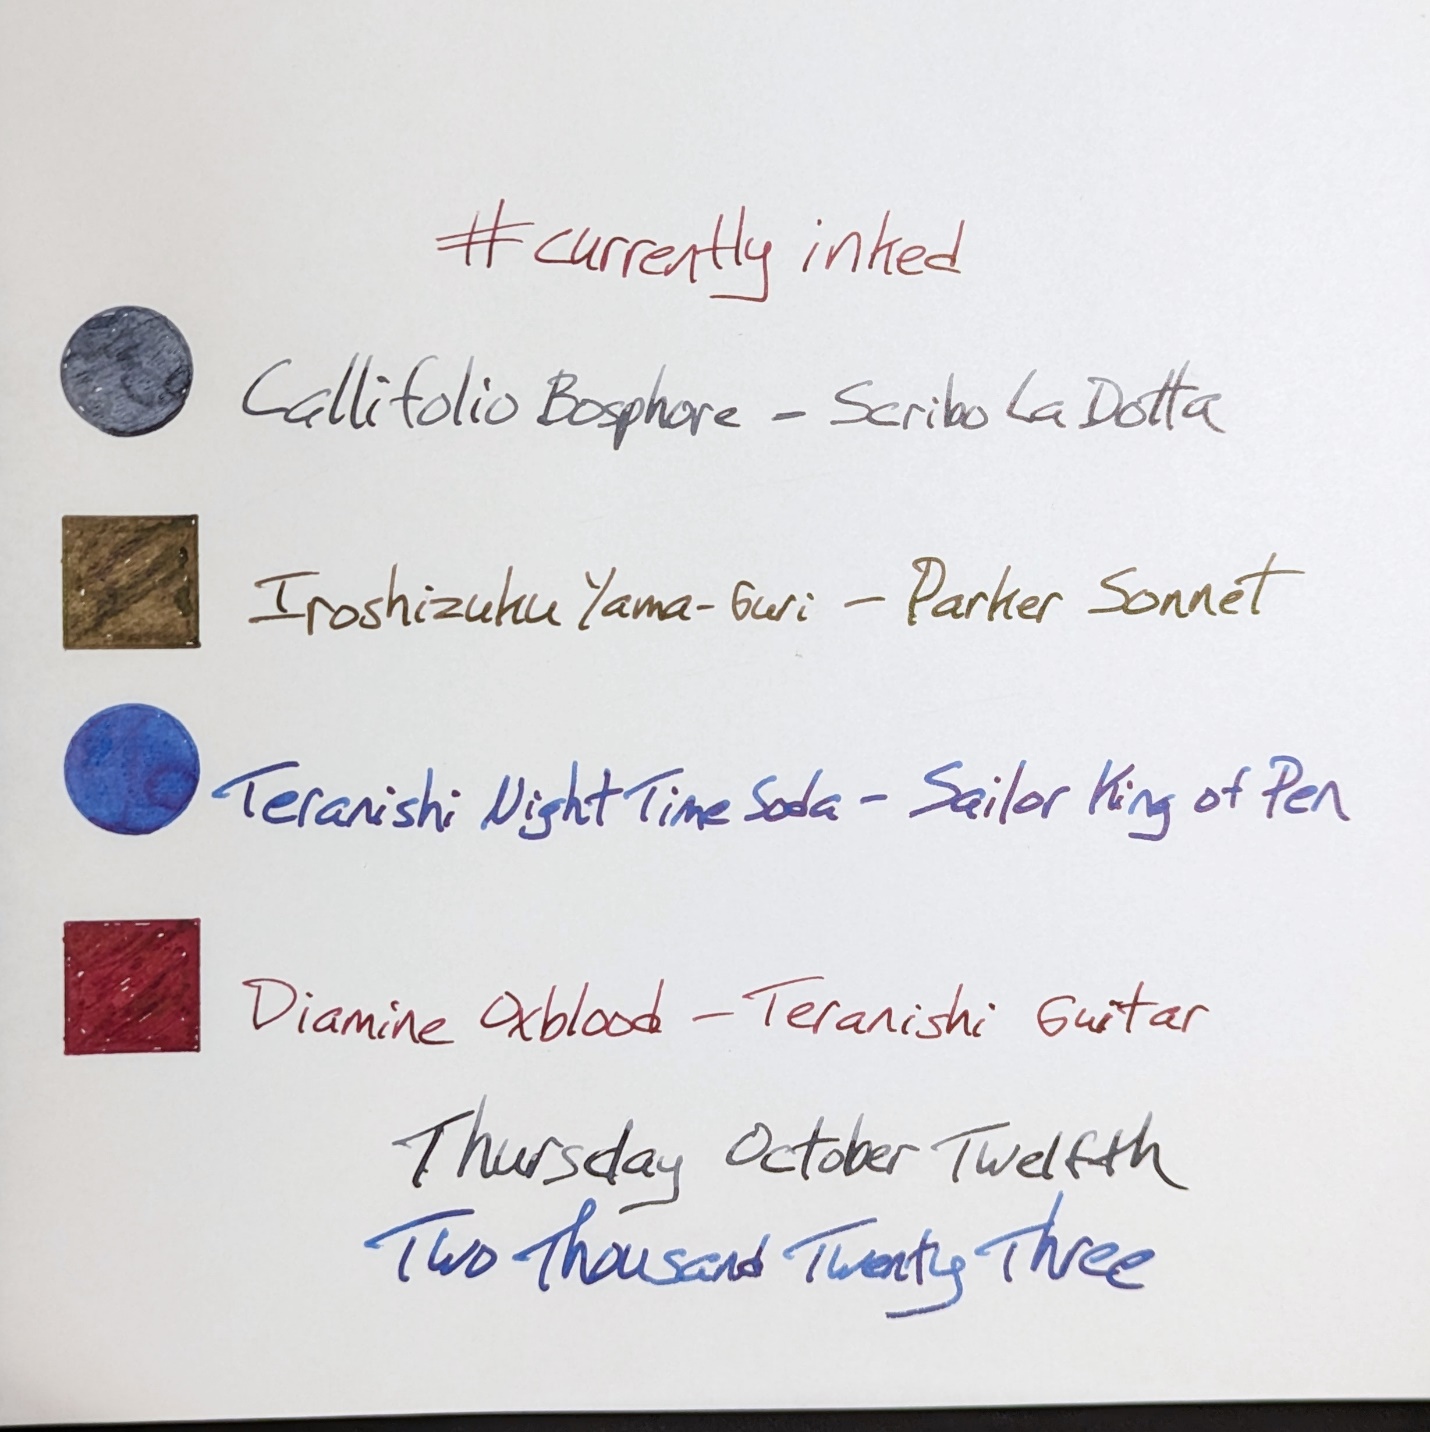 #currently inked
Callifolio Bosphore - Scribo La Dotta
Iroshizuku Yama-Guri - Parker Sonnet
Teranishi Night Time Soda - Sailor King of Pen
Diamine Oxblood - Teranishi Guitar
Thursday October Twelfth
Two Thousand Twenty Three